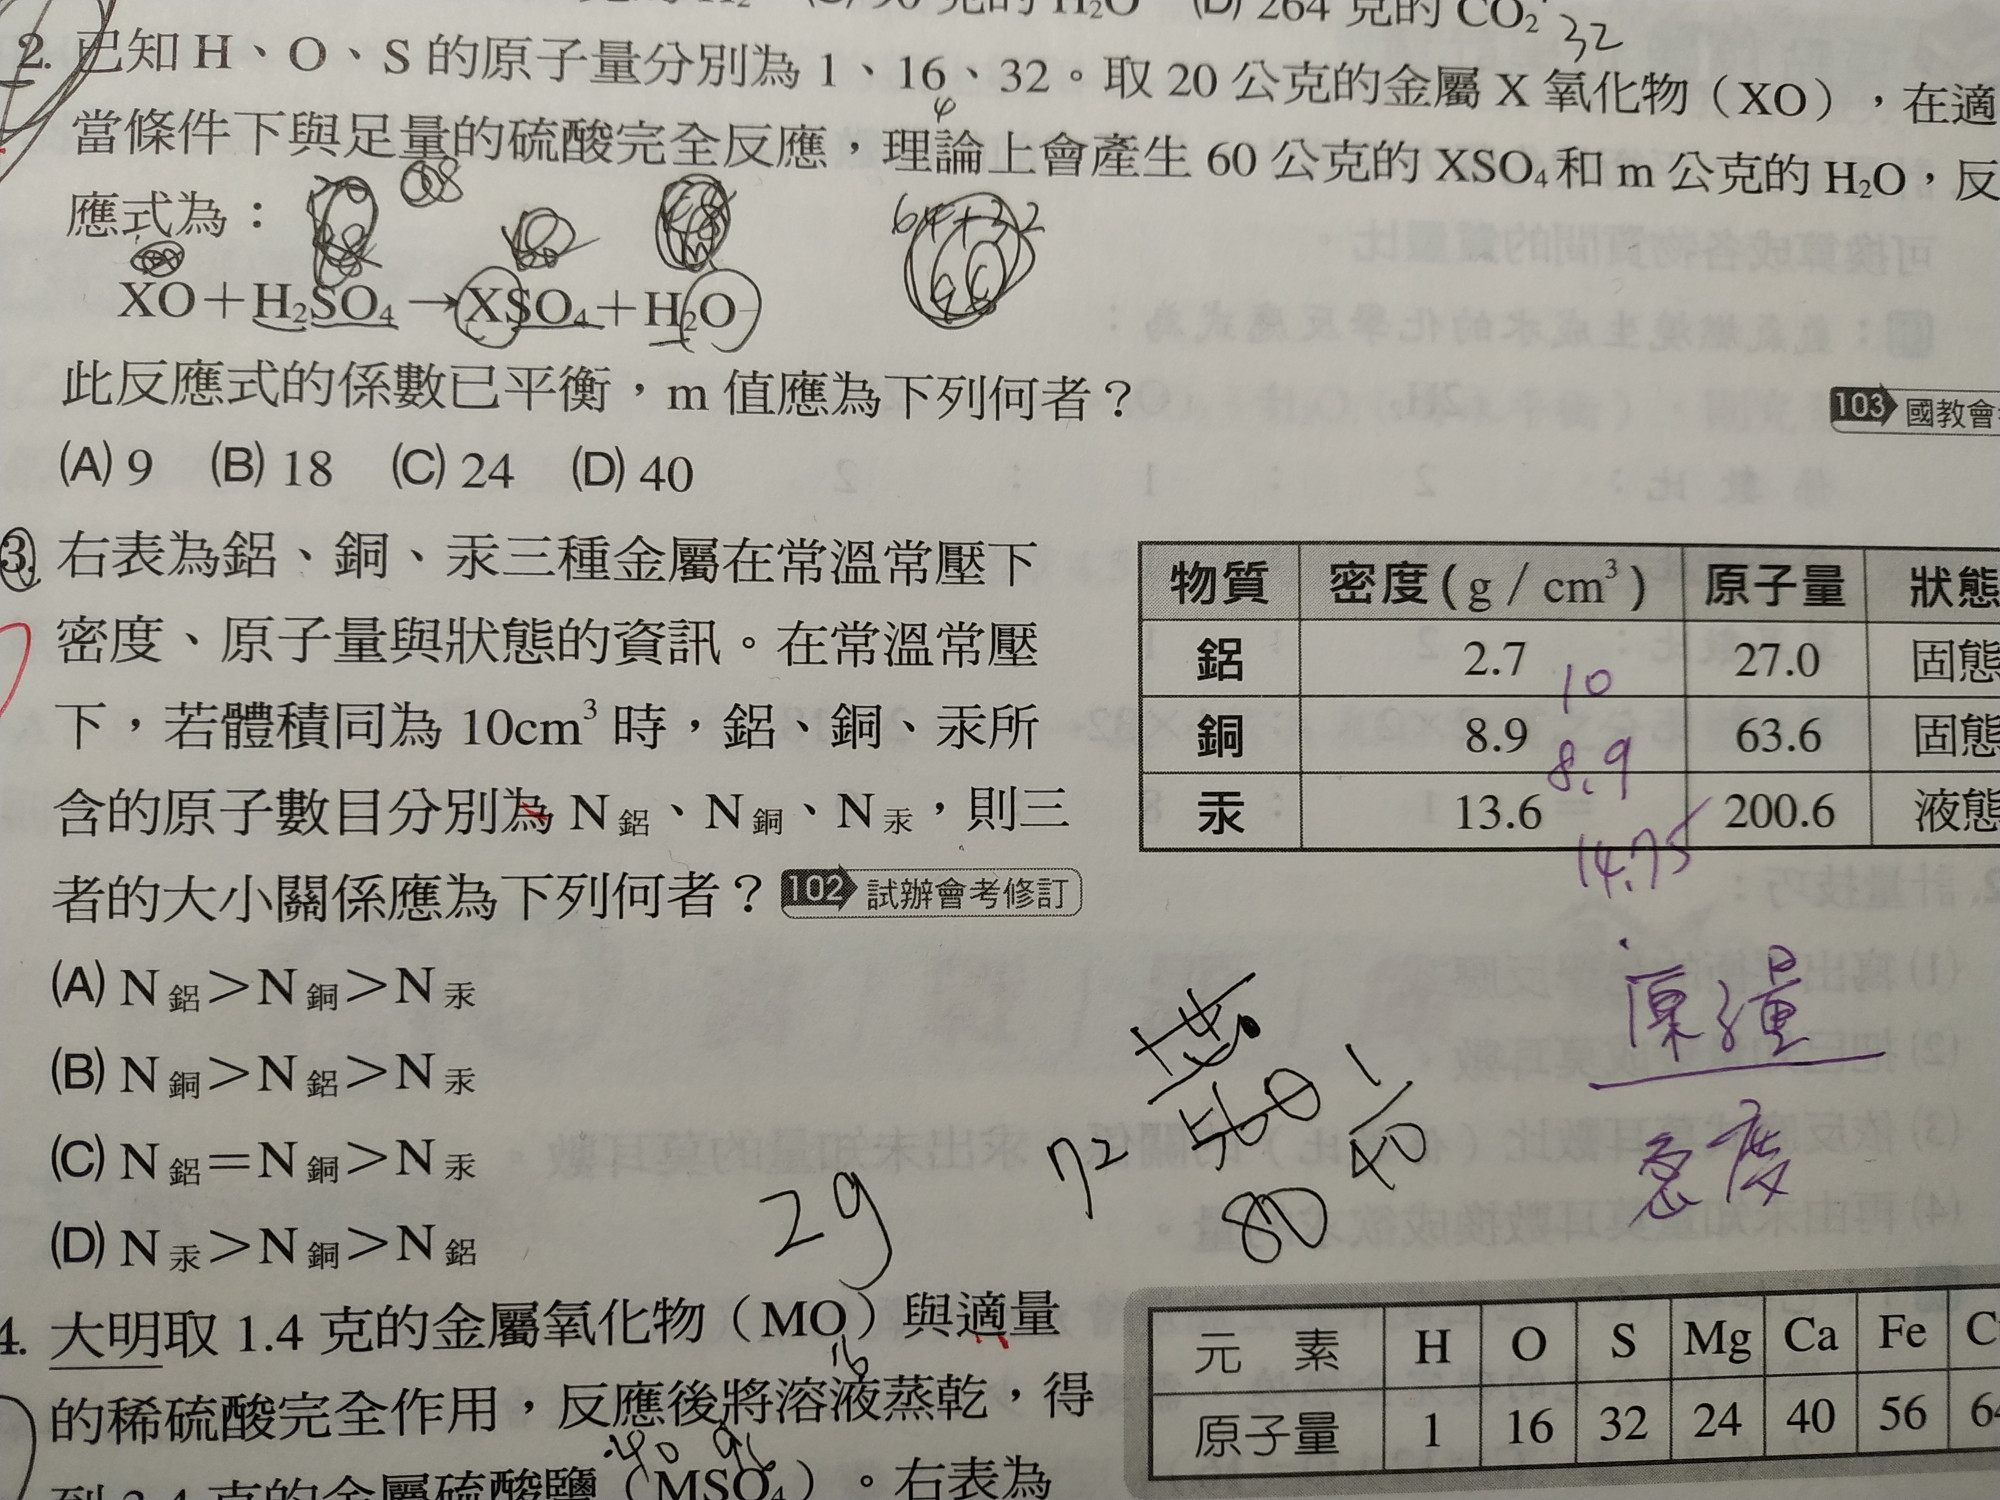 克的 H₂ (C) 90 克的 H₂O (D) 264 克的 CO₂
32
2. 已知 H、O、S 的原子量分別為 1、16、32。取 20 公克的金屬 X 氧化物（XO），在適
當條件下與足量的硫酸完全反應，理論上會產生 60 公克的 XSO₄ 和 m 公克的 H₂O，反
應式為：
64+32
XO＋H₂SO₄→XSO₄＋H₂O
此反應式的係數已平衡，m 值應為下列何者？
103 國教會
(A) 9 (B) 18 (C) 24 (D) 40
3. 右表為鋁、銅、汞三種金屬在常溫常壓下
密度、原子量與狀態的資訊。在常溫常壓
下，若體積同為 10cm³ 時，鋁、銅、汞所
含的原子數目分別為 N鋁、N銅、N汞，則三
者的大小關係應為下列何者？ 102 試辦會考修訂
物質 密度(g / cm³) 原子量 狀態
鋁 2.7 27.0 固態
10
銅 8.9 63.6 固態
8.9
汞 13.6 200.6 液態
14.75
(A) N鋁＞N銅＞N汞
(B) N銅＞N鋁＞N汞
(C) N鋁＝N銅＞N汞
(D) N汞＞N銅＞N鋁
原子量
密度
72
560
1
40
80
29
4. 大明取 1.4 克的金屬氧化物（MO）與適量
16
的稀硫酸完全作用，反應後將溶液蒸乾，得
40 96
到 3.4 克的金屬硫酸鹽（MSO₄）。右表為
元素 H O S Mg Ca Fe
原子量 1 16 32 24 40 56 64